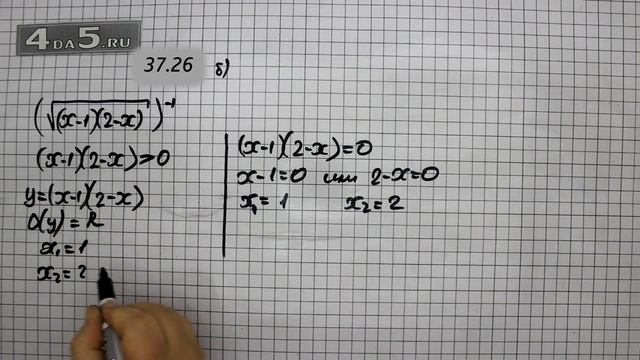 4DA5.RU
37.26 б)
(√(x-1)(2-x))⁻¹
(x-1)(2-x)>0
y=(x-1)(2-x)
D(y)=R
x₁=1
x₂=2
(x-1)(2-x)=0
x-1=0 или 2-x=0
x₁=1 x₂=2